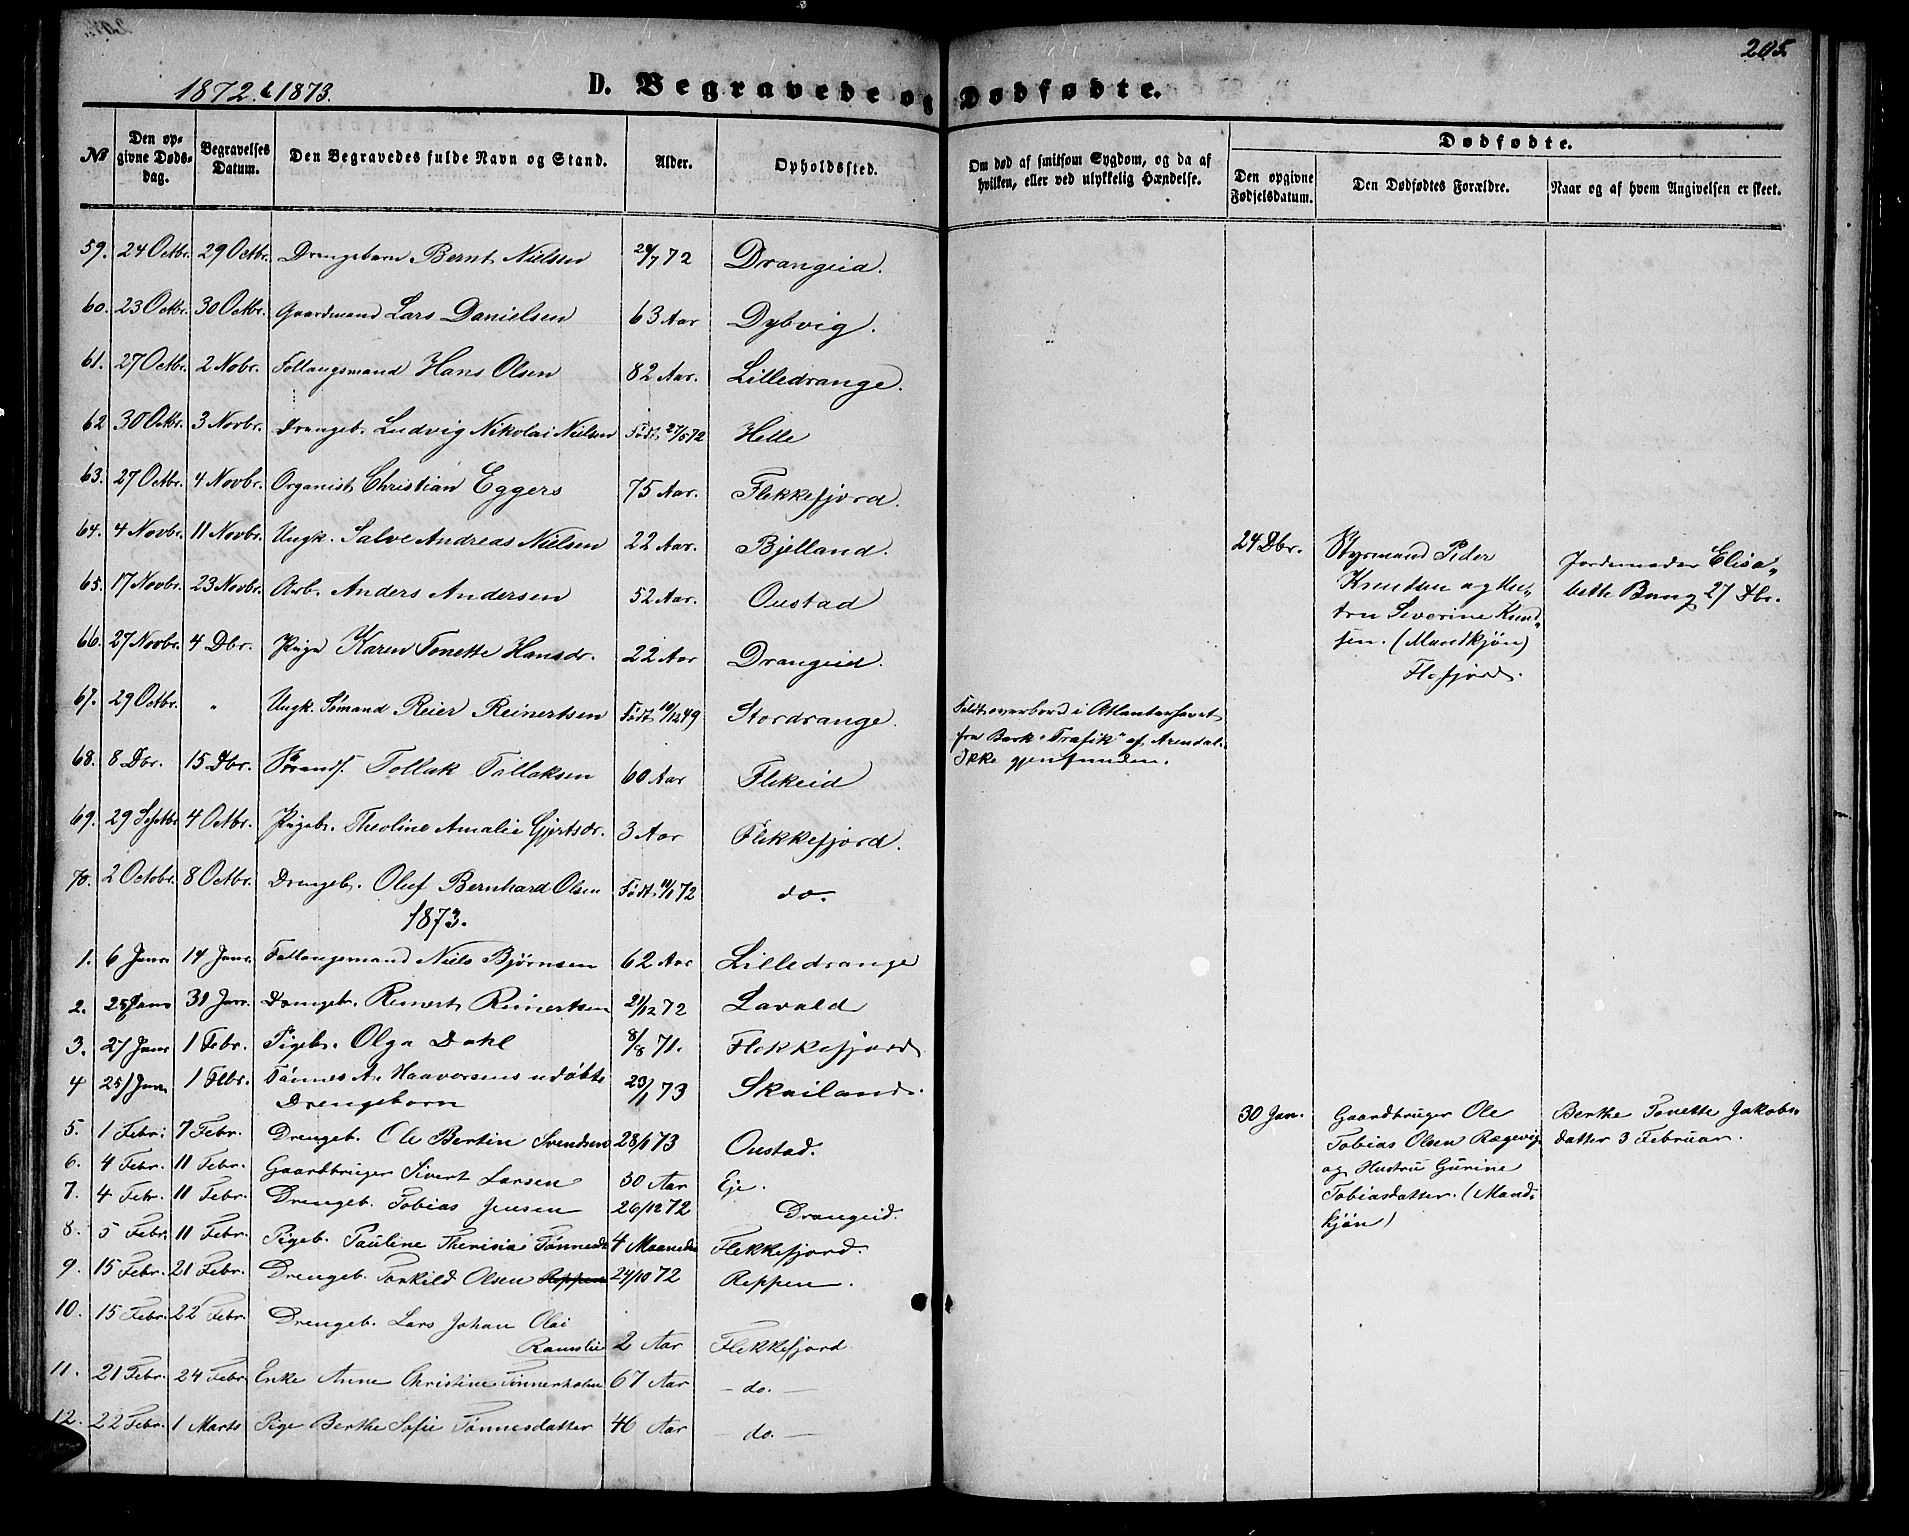 205
1872. & 1873.
D. Begravede og Dødfødte.
№
Den opgivne Dødsdag.
Begravelses Datum.
Den Begravedes fulde Navn og Stand.
Alder.
Opholdssted.
Om død af smitsom Sygdom, og da af hvilken, eller ved ulykkelig Hændelse.
Dødfødte.
Den opgivne Fødselsdatum.
Den Dødfødtes Forældre.
Naar og af hvem Angivelsen er skeet.
59. 24 Octbr. 29 Octbr. Drengebarn Bernt Nielsen 24/7 72 Drangeid.
60. 23 Octbr. 30 Octbr. Gaardmand Lars Danielsen 63 Aar Dybvig.
61. 27 Octbr. 2 Nobr. Follaugsmand Hans Olsen 82 Aar. Lilledrange.
62 30 Octbr. 3 Novbr. Drengeb. Ludvig Nikolai Nielsen Født 27/5 72 Helle
63. 27 Octbr. 4 Novbr. Organist Christian Eggers 75 Aar. Flekkefjord.
64. 4 Novbr. 11 Novbr. Ungk. Salve Andreas Nielsen 22 Aar. Bjelland.
24 Dbr. Styrmand Peder
Knudsen og Hu-
stru Severine Knud-
sen. (Mandkjøn)
Flefjord.
Jordemoder Elisa-
beth Bang 27 Dbr.
65. 17 Novbr. 23 Novbr. Arb. Anders Andersen 52 Aar. Oustad
66. 27 Novbr. 4 Dbr. Pige Karen Tonette Hansdr. 22 Aar Drangeid.
67. 29 Octbr. " Ungk. Sømand Reier Reinertsen Født 10/12 49 Stordrange.
Faldt overbord i Atlanterhavet
fra Bark "Trafik" af Arendal.
Ikke gjenfunden.
68. 8 Dbr. 15 Dbr. Tollak Tollaksen 60 Aar Flikeid
69. 29 Septbr 4 Octbr. Pigeb. Theoline Amalie Gjertsdr. 3 Aar Flekkefjord.
70. 2 Octobr. 8 Octbr. Drengeb. Oluf Bernhard Olsen Født 11/1 72 do.
1873.
1. 6 Janr. 14 Janr. Follaugsmand Niels Bjørnsen 62 Aar Lilledrange
2. 25 Janr 31 Janr. Drengeb. Reinert Reinertsen 21/12 72 Lavold
3. 27 Janr 1 Febr. Pigeb. Olga Dahl 8/8 71. Flekkefjord.
4 25 Janr 1 Febr. Tønnes A. Haaversens udøbte
Drengebarn 23/1 73 Skailand.
5. 1 Febr: 7 Febr. Drengeb. Ole Bertin Svendsen 28/1 73 Oustad.
30 Jan. Gaardbruger Ole
Tobias Olsen Rægevig
og Hustru Gurine
Tobiasdatter. (Mand-
kjøn)
Berthe Tonette Jakobs-
datter 3 Februar.
6. 4 Febr. 11 Febr. Gaardbruger Sivert Larsen 30 Aar Eje.
7. 4 Febr. 11 Febr. Drengeb. Tobias Jensen 26/12 72 Drangeid.
8. 5 Febr. 11 Febr. Pigeb. Pauline Therisia Tønnesdr 4 Maaneder Flekkefjord.
9. 15 Febr. 21 Febr. Drengeb. Torkild Olsen Reppen 24/10 72 Reppen.
10. 15 Febr. 22 Febr. Drengeb. Lars Johan Olai
Ramslie 2 Aar Flekkefjord
11. 21 Febr. 24 Febr. Enke Anne Christine Tinnerholm 67 Aar - do. -
12. 22 Febr. 1 Marts Pige Berthe Sofie Tønnesdatter 46 Aar - do. -